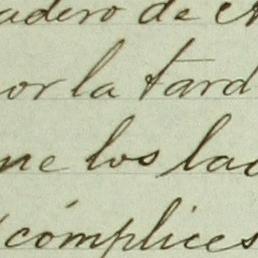 adero de
or la tard
ne los lad
cómplices